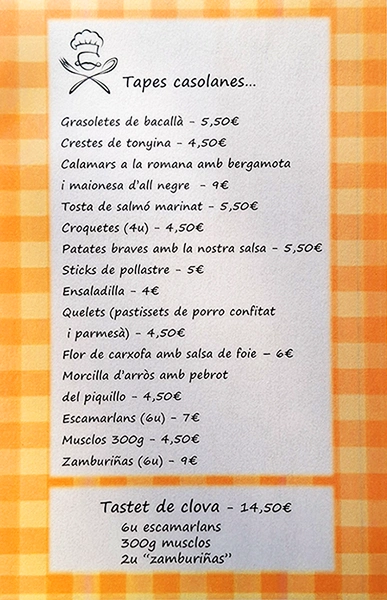 Tapes casolanes...
Grasoletes de bacallà - 5,50€
Crestes de tonyina - 4,50€
Calamars a la romana amb bergamota
i maionesa d'all negre - 9€
Tosta de salmó marinat - 5,50€
Croquetes (4u) - 4,50€
Patates braves amb la nostra salsa - 5,50€
Sticks de pollastre - 5€
Ensaladilla - 4€
Quelets (pastissets de porro confitat
i parmesà) - 4,50€
Flor de carxofa amb salsa de foie – 6€
Morcilla d'arròs amb pebrot
del piquillo - 4,50€
Escamarlans (6u) - 7€
Musclos 300g - 4,50€
Zamburiñas (6u) - 9€
Tastet de clova - 14,50€
6u escamarlans
300g musclos
2u "zamburiñas"